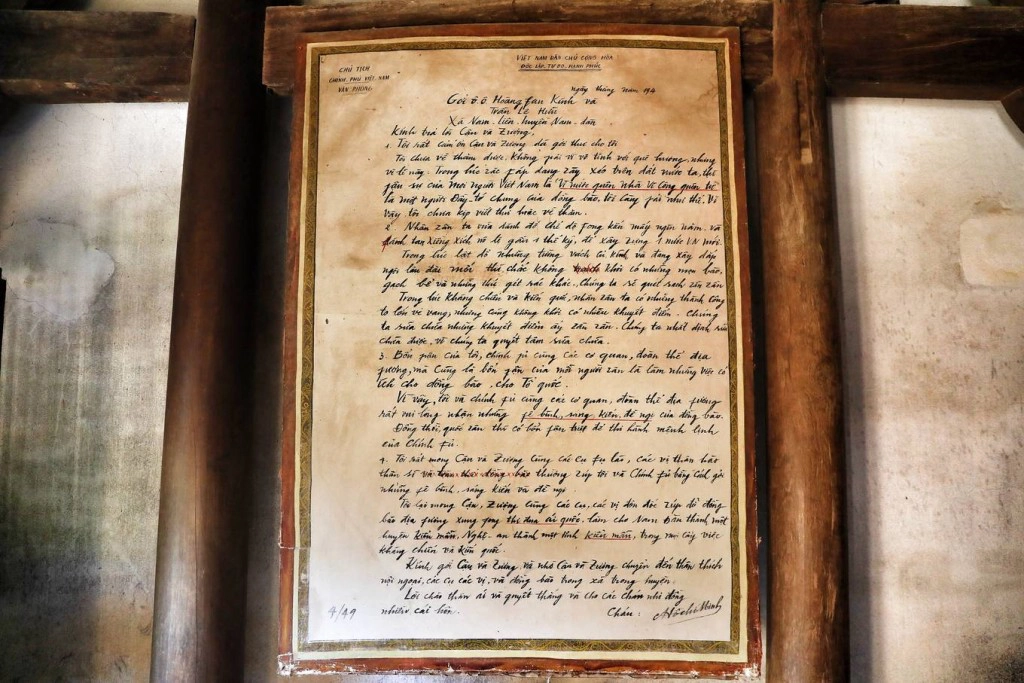 CHỦ TỊCH
CHÍNH PHỦ VIỆT NAM
VĂN PHÒNG
VIỆT NAM DÂN CHỦ CỘNG HÒA
ĐỘC LẬP TỰ DO HẠNH PHÚC
ngày tháng năm 194
Gởi ô ô Hoàng fan Kính và
Trần Lê Hiếu
Xã Nam-liên, huyện Nam-đàn
Kính trả lời Cậu và Zượng.
1. Tôi rất cảm ơn Cậu và Zượng đã gởi thư cho tôi
Tôi chưa về thăm được, không fải vì vô tình với quê hương, nhưng
vì lẽ này: Trong lúc zặc Fáp đang zày xéo trên đất nước ta, thì
fận sự của mọi người Việt Nam là Vì nước quên nhà Vì công quên tư
là một người Đầy-tớ chung của đồng bào, tôi càng fải như thế. Vì
vậy tôi chưa kịp viết thư hoặc về thăm.
2. Nhân zân ta vừa đánh đổ chế độ fong kiến mấy nghìn năm, và
đánh tan xiềng xích nô lệ gần 1 thế kỷ, để xây zựng 1 nước V.N mới.
Trong lúc lật đổ những tường vách cũ kĩnh và đang xây đắp
ngôi lâu đài mới thì chắc không khỏi có những mẹo bão,
gạch bể và những thứ zét rác khác. Chúng ta sẽ quét sạch zần zần
Trong lúc kháng chiến và kiến quốc, nhân zân ta có những thành công
to lớn vẻ vang, nhưng cũng không khỏi có nhiều khuyết điểm. Chúng
ta sửa chữa những khuyết điểm ấy zần zần. Chúng ta nhất định sửa
chữa được, vì chúng ta quyết tâm sửa chữa.
3. Bổn fận của tôi, chính fủ cùng các cơ quan, đoàn thể địa
fương, mà cũng là bổn fận của mỗi người zân là làm những việc có
ích cho đồng bào, cho Tổ quốc.
Vì vậy, tôi và chính fủ cùng các cơ quan, đoàn thể địa fương
rất vui lòng nhận những fê bình, sáng kiến, đề nghị của đồng bào.
Đồng thời, quốc zân thì có bổn fận triệt để thi hành mệnh lịnh
của Chính fủ.
4. Tôi rất mong Cậu và Zượng cùng các cụ fụ lão, các vị thân hào
thân sĩ và thường zúp tôi và Chính fủ bằng cách gởi
những fê bình, sáng kiến và đề nghị
Tôi lại mong Cậu, Zượng cùng các cụ, các vị đôn đốc zúp đỡ đồng
bào địa fương xung fong thi đua ái quốc, làm cho Nam Đàn thành một
huyện kiểu mẫu, Nghệ-an thành một tỉnh kiểu mẫu, trong mọi công việc
kháng chiến và kiến quốc.
Kính gởi Cậu và Zượng, và nhờ Cậu và Zượng chuyển đến thân thích
nội ngoại, các cụ các vị, và đồng bào trong xã trong huyện.
Lời chào thân ái và quyết thắng và cho các cháu nhi đồng
nhiều cái hôn.
Cháu: Hồ Chí Minh
4/49